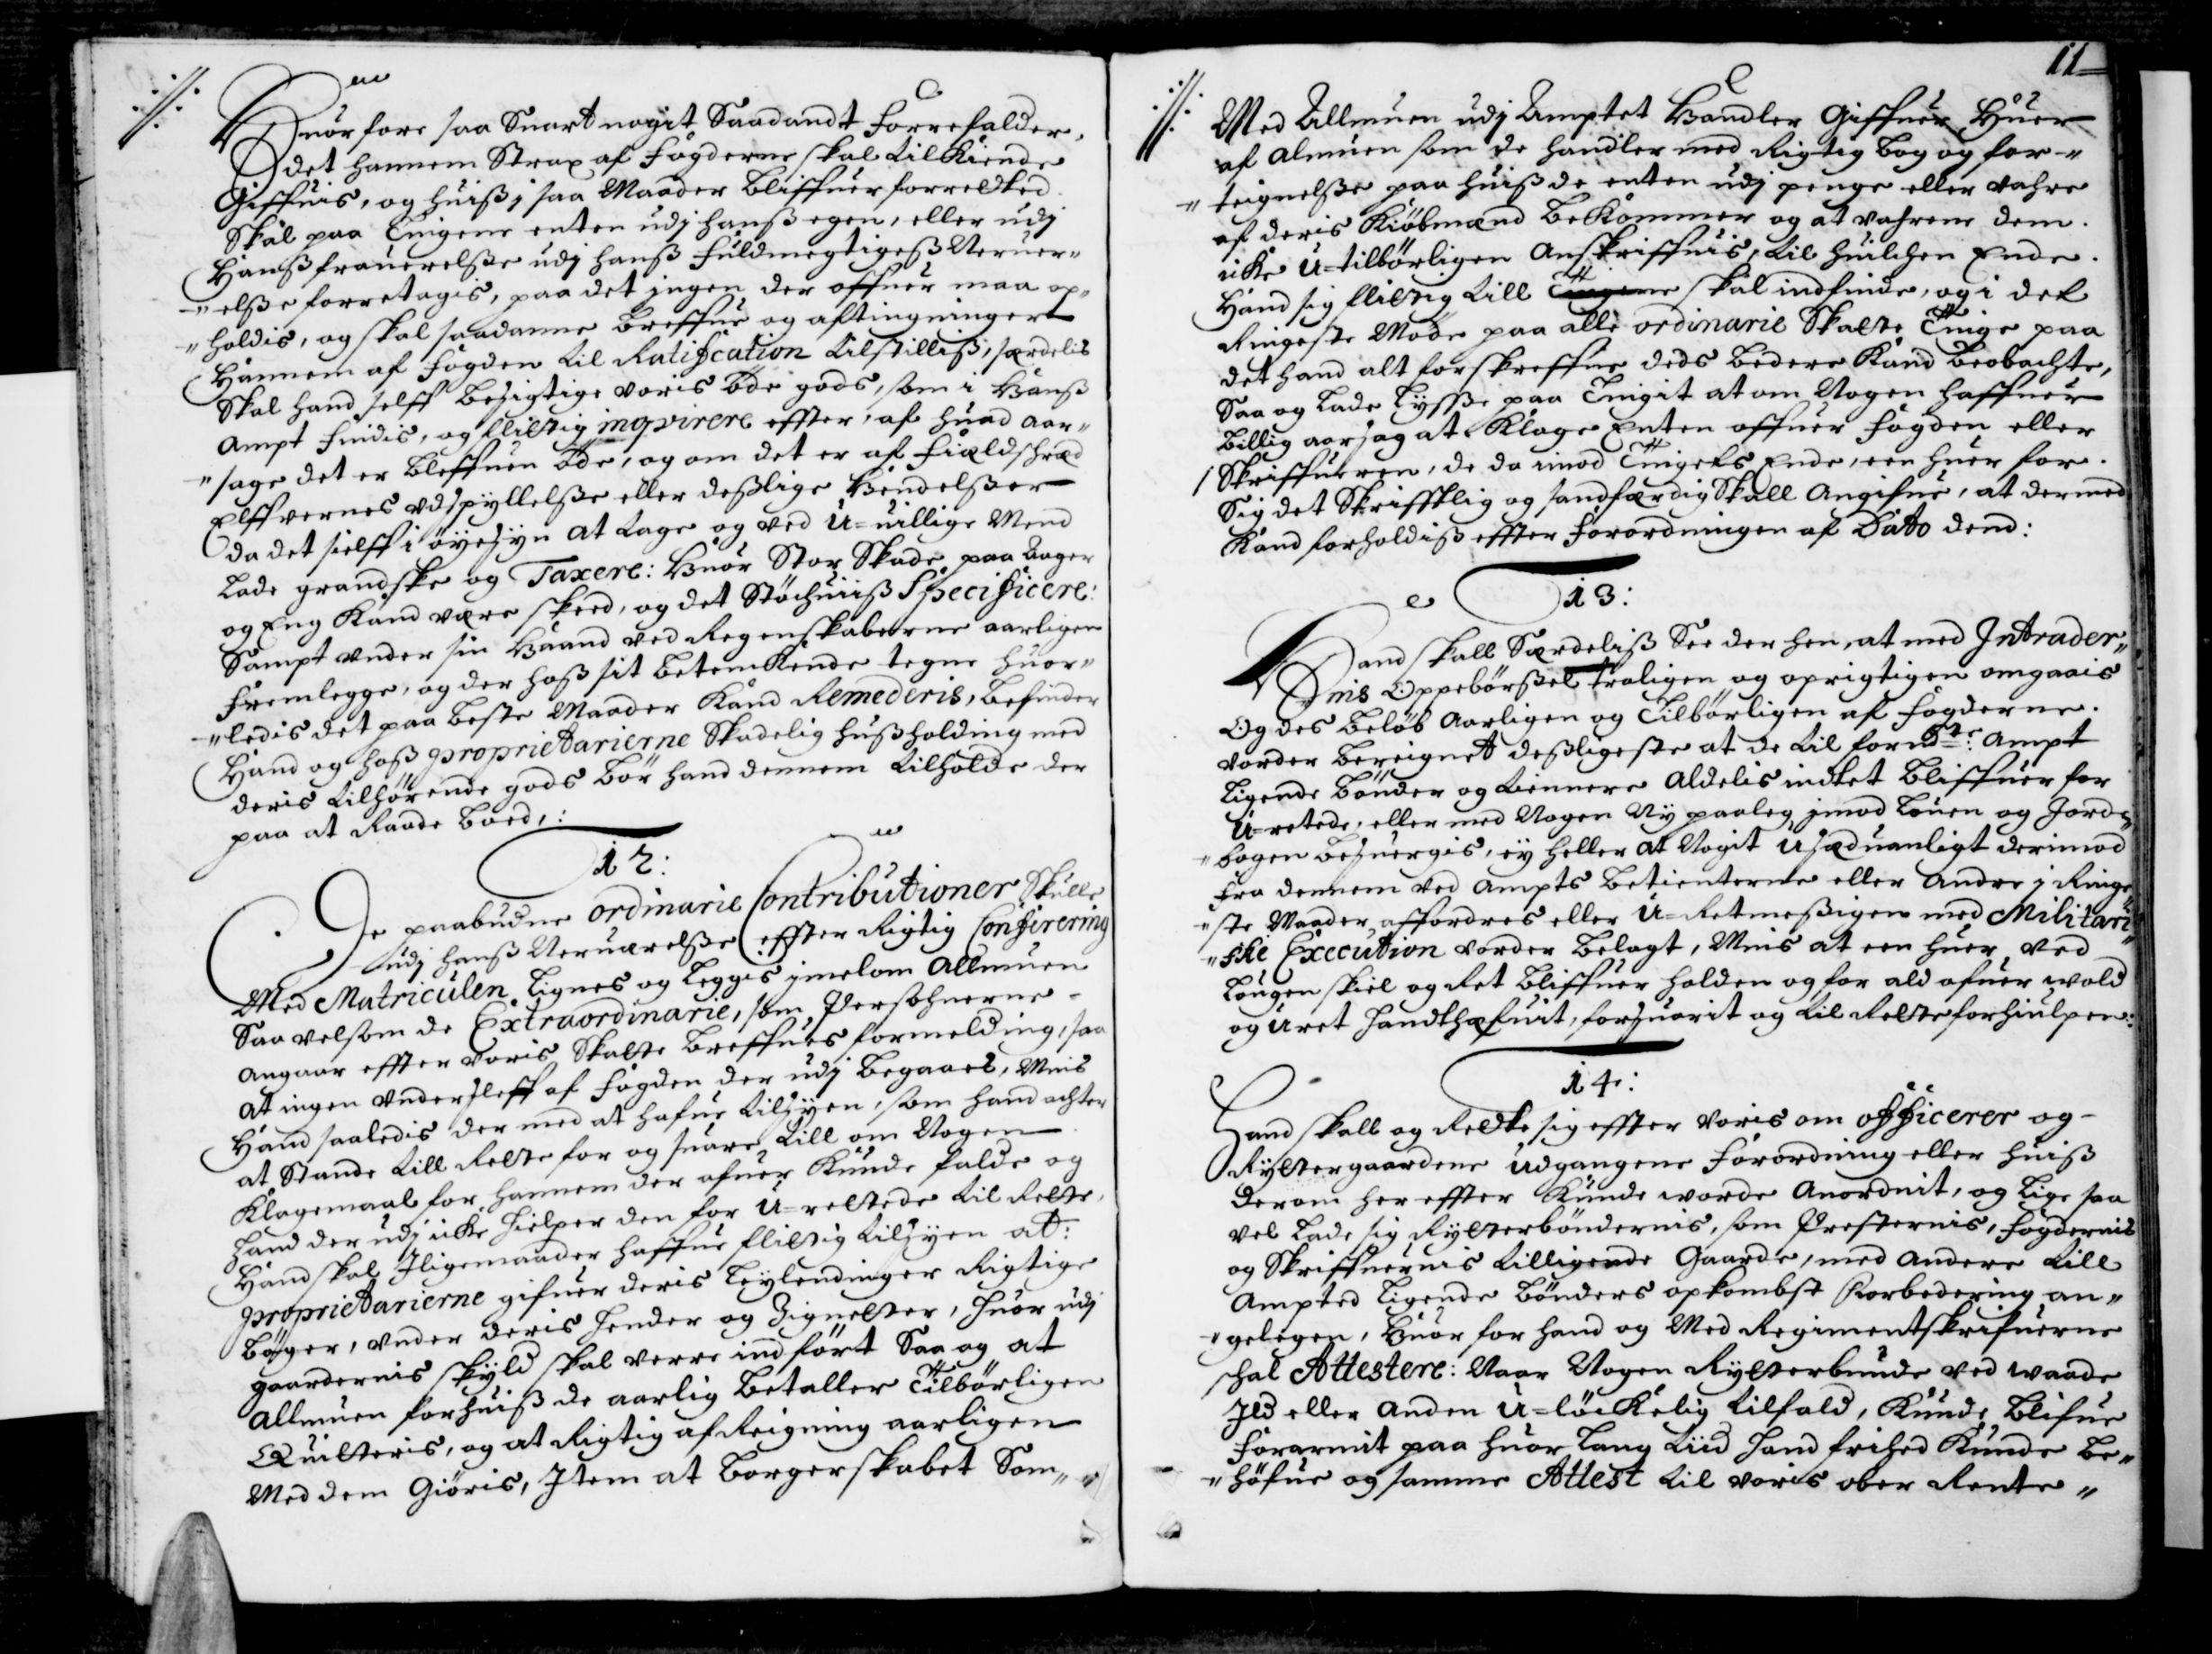 Huor fore saa Snart nogit Saadandt Forrefalder,
det hannem Strax af Fogderne skal tilkiende
Giffuis, og huiß j saa Maader bliffuer forretted
Skal paa Tingene enten udj hanß egen, eller udj
Hanß frauerelße udj hanß Fuldmegtigeß Neruer„
„elße forretagis, paa det ingen der offuer maa op„
„holdis, og skal saadanne Breffue og aftingninger
Hannem af Fogden til Ratification tilstilliß, særdelis
Skal hand self besigtige voris øde gods, som i Hanß
Ampt findis, og flittig inqvirere effter, af huad aar„
„sage det er bleffuen øde, og om det er af Fieldschred
Elffvernes udspyllelße eller deßlige Hendelßer
da det sielff i øyesyn at tage og ved U=uillige Mend
lade grandske og Taxere: Huor Stor Skade paa Ager
og Eng Kand være skeed, og det Støchuiiß Specificere:
Sampt under sin Haand ved Regenskaberne aarligen
Fremlegge, og der hoß sit betenkende tegne huor„
„ledis det paa beste Maader Kand Remederis, befinder
Hand og hoß proprietarierne Skadelig hußholding med
deris tilhørende gods bør hand dennem tilholde der
paa at Raade boed,:
12:
De paabudne ordinarie Contributioner Skulle
udj hanß Neruærelße effter Rigtig Confirering
Med Matriculen lignes og legges jmelom Allmuen
Saa velsom de Extraordinarie, som Persohnerne
angaar effter voris Skatte breffues formelding, saa
at ingen underslef af Fogden der udj begaaes, Mens
Hand saaledis der med at hafue tilsyen, som hand achter
at Stande till Rette for og suare till om Nogen
Klagemaal for hannem der ofuer Kunde falde og
hand der udj icke hielper den for U=rettede til Rette,
Hand skal Iligemaader haffue flittig tilsyen at:
proprietarierne gifuer deris leylendinger Rigtige
bøger, under deris hender og Zigneter, huor udj
gaardernis skyld skal verre indført Saa og at
Allmuen forhuiß de aarlig betaller Tilbørligen
Quitteris, og at Rigtig afReigning aarligen
Med dem Giøris, Item at Borgerskabet Som„
11
Med Allmuen udj Amptet Handler Giffuer Huer
af almuen som de handler med Rigtig bog og for„
„teignelße paa huiß de enten udj penge eller vahre
af deris Kiøbmænd bekommer og at vahrene dem
icke U=tilbørligen Anskriffuis, til huilchen Ende
Hand sig flittig till Tingene skal indfinde, og i det
Ringeste Møde paa alle ordinarie Skatte Tinge paa
det hand alt forskreffne deds bedere Kand beobachte,
Saa og lade lysße paa Tingit at om Nogen haffuer
billig aarsag at Klage Enten offuer Fogden eller
Skriffueren, de da imod Tingets Ende, een huer for
Sig det Skrifftlig og sandfærdig Skall Angifue, at dermed
Kand forholdiß effter Forordningen af Dato dend:
13:
Hand skall Særdeliß See der hen, at med Intrader„
nis Oppebørßel troligen og oprigtigen omgaais
Og des beløb Aarligen og Tilbørligen af Fogderne
vorder bereignet deßligeste at de til fornte: Ampt
ligende bønder og tiennere Aldelis indtet bliffuer for
U=rettede, eller med Nogen Ny paaleg imod louen og Jorde„
„bogen besuergis, ey heller at Nogit Usæduanligt derimod
fra dennem ved Ampts betienterne eller Andre j Ringe„
„ste Maader, affordres eller U=Retmeßigen med Militari„
„ske Execution vorder belagt, Mens at een huer ved
lougen skiel og Ret bliffuer holden og for ald ofuer wold
og Uret handthæfuit, forsuarit og til Rette forhiulpen:
14:
Hand skall og Rette sig effter voris om officerer og
Rytter gaardene Udgangene Forordning eller huiß
derom her effter Kunde worde Anordnit, og lige saa
vel lade sig Rytterbøndernis, som Presternis, Fogdernis
og Skriffuernis tilligende Gaarde, med Andere till
Ampted ligende bønders opkombst Forbedering an„
„gelegen, Huor for hand og Med Regimentskrifuerne
schal Attestere: Naar Nogen Rytterbunde ved waade
Ild eller Anden U=løckelig tilfald, Kunde blifue
Forarmit paa huor lang tiid hand frihed Kunde be„
„høfue og samme Attest til voris ober Rente„